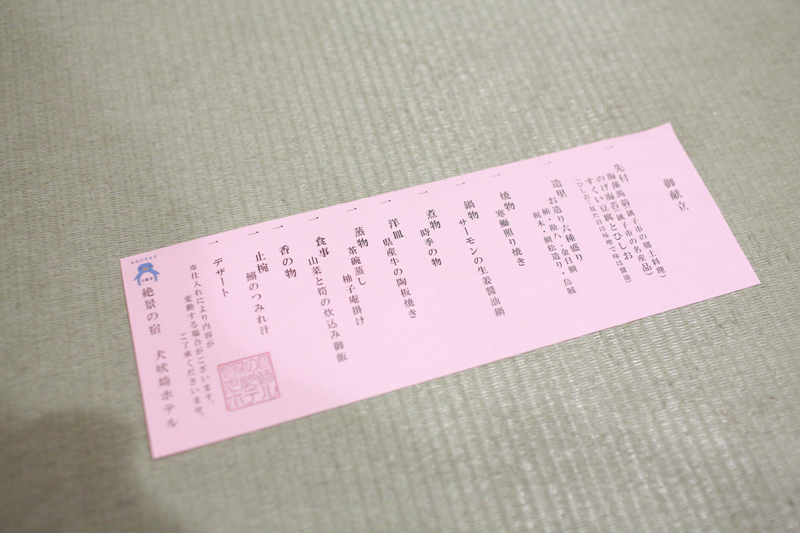 御献立
一
先付
海藻蒟蒻(銚子市の郷土料理)
のげ海苔(銚子市の名産品)
すくい豆腐とひしお
(ひしお:見た目は味噌で味は醤油)
一
造里 お造り六種盛り
鮪・勘八・金目鯛・烏賊
梶木・鯛松造り
一
焼物 寒鰤照り焼き
一
鍋物 サーモンの生姜醤油鍋
一
煮物 時季の物
一
洋皿 県産牛の陶板焼き
一
蒸物 茶碗蒸し
柚子庵掛け
一
食事 山菜と筍の炊込み御飯
一
香の物
一
止椀 鰯のつみれ汁
一
デザート
※仕入れにより内容が
変動する場合がございます。
ご了承くださいませ。
絶景の宿 犬吠埼ホテル